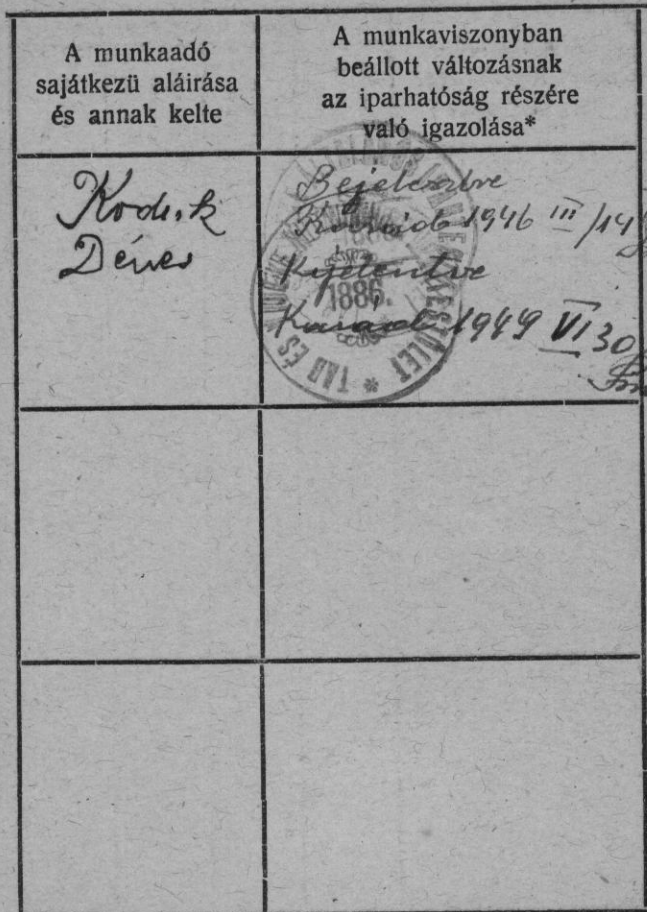 A munkaadó
sajátkezü aláirása
és annak kelte
A munkaviszonyban
beállott változásnak
az iparhatóság részére
való igazolása*
Dénes
Bejelentve
Karád 1946 III/14
Kijelentve
Karád 1949 VI 30
1886.
TAB ÉS
IPARTESTÜLET *